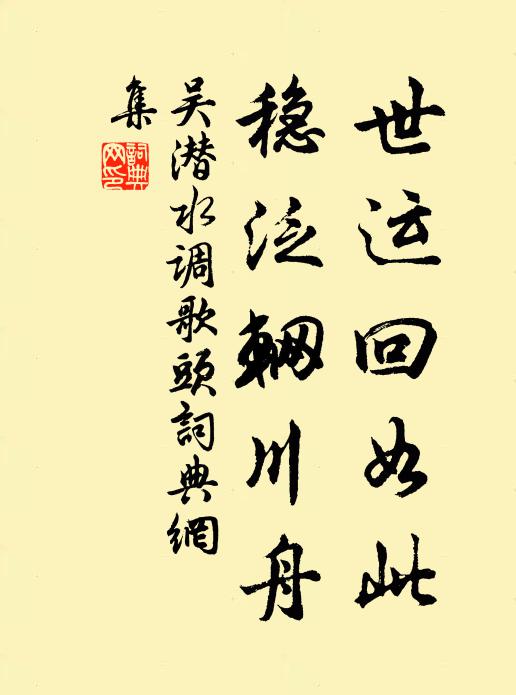 世运回如此
稳泛辋川舟
吴潜水调歌頭詞典網
集
詞典
网印